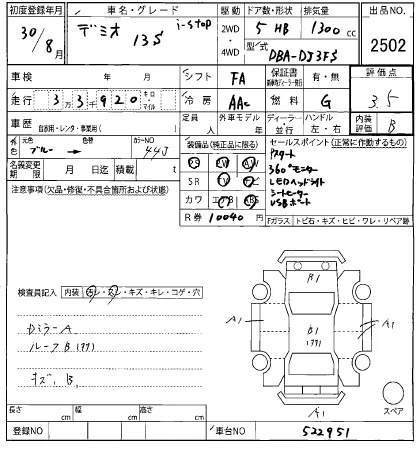 初度登録年月 車名・グレード 駆動 ドア数・形状 排気量 出品NO.
30/8月 デミオ 13S i-stop 2WD・4WD 5 HB 1300cc 2502
型式 DBA-DJ3FS
車検 年 月 シフト FA 保証書 有・無 評価点
走行 3万3千920 キロ・マイル 冷房 AAC 燃料 G 3.5
車歴 自家用・レンタ・事業用( ) 定員 人 外車モデル 年 ディーラー・並行 ハンドル 左・右 内装評価 B
外色 元色 ブルー → 色替 カラーNO 44J
名義変更期限 月 日迄 積載 t
装備品(純正品に限る)
PS PW AW
SR TV ナビ
カワ エアB ABS
R券 10040円
セールスポイント(正常に作動するもの)
Pスタート
360°モニター
LEDヘッドライト
シートヒーター
USBポート
Fガラス トビ石・キズ・ヒビ・ワレ・リペア跡
注意事項(欠品・修復・不具合箇所および状態)
検査員記入 内装 汚レ・スレ・キズ・キレ・コゲ・穴
DミラーA
ルーフB(アワ)
キズ、B
B1
A1
B1
(アワ)
A1
A1
スペア
長さ cm 幅 cm 高さ cm
登録NO 車台NO 522951